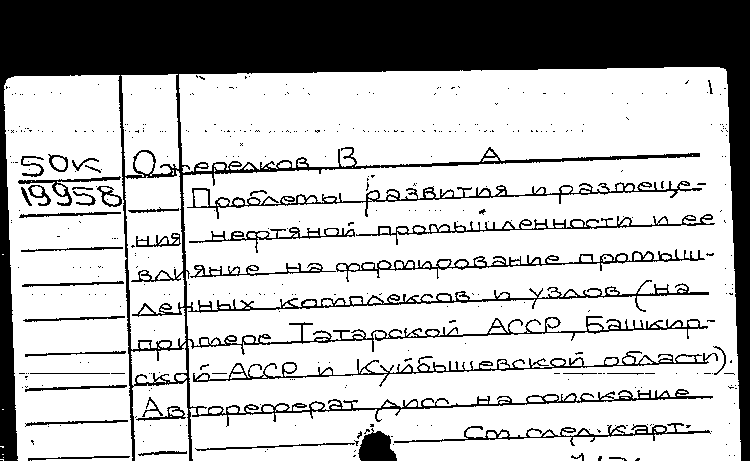 1
50к Ожерелков, В А
19958 Проблемы развития и размеще-
ния нефтяной промышленности и ее
влияние на формирование промыш-
ленных комплексов и узлов (на
примере Татарской АССР, Башкир-
ской АССР и Куйбышевской области).
Автореферат дисс. на соискание
См. след. карт.